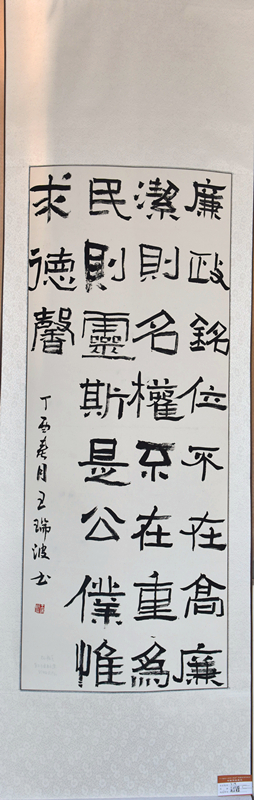 廉政銘位不在高廉
潔則名權不在重為
民則靈斯是公僕惟
求德馨
丁酉春月王瑞波书